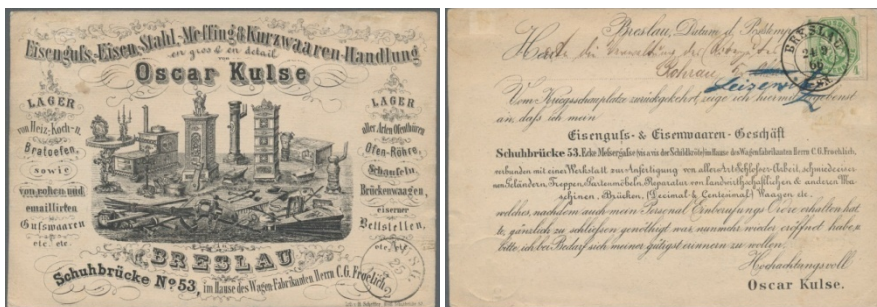 Eisenguſs-Eisen, Stahl,-Meſsing & Kurzwaaren-Handlung
en gros & en detail
von
Oscar Kulse
LAGER
von Heiz-Koch-u.
Bratoefen,
sowie
von rohen und
emaillirten
Guſswaaren
etc. etc.
LAGER
aller Arten Ofenthüren
Ofen-Röhre,
Schaufeln,
Brückenwaagen,
eiserner
Bettstellen,
etc. etc.
BRESLAU
Schuhbrücke No 53, im Hause des Wagen-Fabrikanten Herrn C.G. Froelich.
Breslau, Datum d. Poststemp
BRESLAU
66
Vom Kriegsschauplatze zurückgekehrt, zeige ich hiermit ergebenst
an, daſs ich mein
Eisenguſs- & Eisenwaaren-Geschäft
Schuhbrücke 53, Ecke Meſsergaſse (vis a vis der Schildkröte) im Hause des Wagenfabrikanten Herrn C.G. Froelich,
verbunden mit einer Werkstatt zur Anfertigung von aller Art Schloſser-Arbeit, schmiedeeiser
nen Geländern, Treppen, Gartenmöbeln, Reparatur von landwirthschaftlichen & anderen Ma-
schinen, Brücken, (Decimal & Centesimal) Waagen etc.
welches, nachdem auch mein Personal Einberufungs Ordre erhalten hat-
te, gänzlich zu schlieſsen genöthigt war, nunmehr wieder eröffnet habe &
bitte ich bei Bedarf sich meiner gütigst erinnern zu wollen.
Hochachtungsvoll
Oscar Kulse.